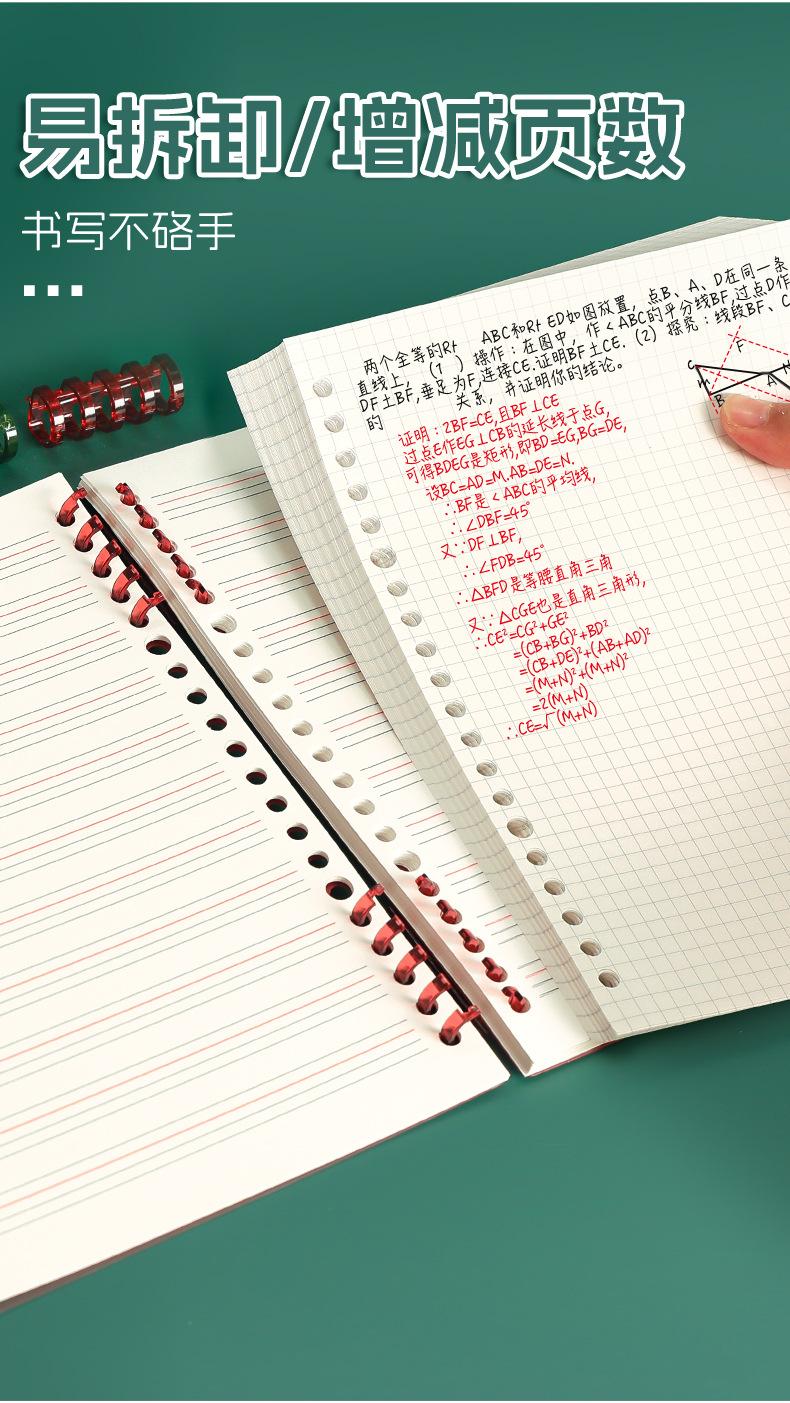 易拆卸/增减页数
书写不硌手
两个全等的Rt ABC和Rt ED如图放置，点B、A、D在同一条
直线上，(1) 操作：在图中，作<ABC的平分线BF,过点D作
DF土BF,垂足为F,连接CE.证明BF土CE. (2) 探究：线段BF、C
的 关系，并证明你的结论。
证明：2BF=CE,且BF⊥CE
过点E作EG⊥CB的延长线于点G,
可得BDEG是矩形,即BD=EG,BG=DE,
设BC=AD=M.AB=DE=N.
∴BF是<ABC的平均线,
∴∠DBF=45°
又∵DF⊥BF,
∴∠FDB=45°
∴△BFD是等腰直角三角
又∵△CGE也是直角三角形,
∴CE²=CG²+GE²
=(CB+BG)²+BD²
=(CB+DE)²+(AB+AD)²
=(M+N)²+(M+N)²
=2(M+N)
∴CE=√(M+N)
F
C
M
B
A